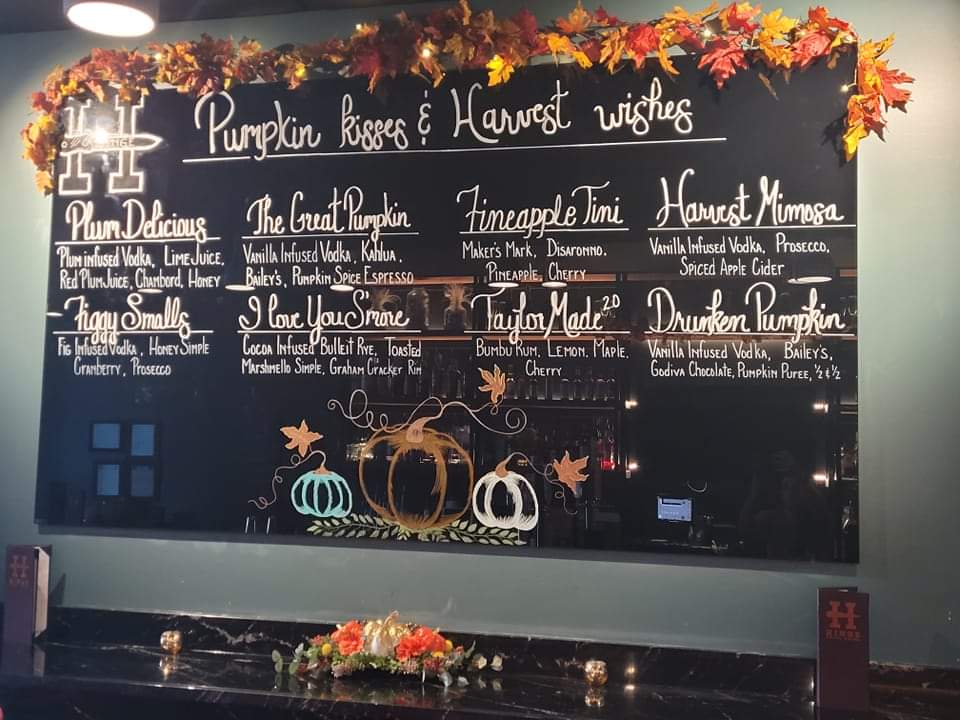 Pumpkin kisses & Harvest wishes
H
Plum Delicious
Plum infused Vodka, Lime Juice,
Red Plum Juice, Chambord, Honey
The Great Pumpkin
Vanilla Infused Vodka, Kahlua,
Bailey's, Pumpkin Spice Espresso
Fineapple Tini
Maker's Mark, Disaronno,
Pineapple, Cherry
Harvest Mimosa
Vanilla Infused Vodka, Prosecco,
Spiced Apple Cider
Figgy Smalls
Fig Infused Vodka, Honey Simple
Cranberry, Prosecco
I Love You S'more
Cocoa Infused Bulleit Rye, Toasted
Marshmello Simple, Graham Cracker Rim
Taylor Made 2.0
Bumbu Rum, Lemon, Maple,
Cherry
Drunken Pumpkin
Vanilla Infused Vodka, Bailey's,
Godiva Chocolate, Pumpkin Puree, ½ & ½
H
H